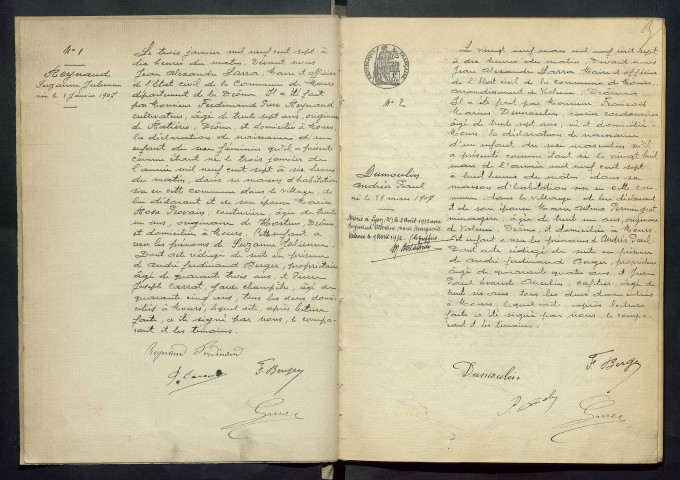 N° 1
Reynaud
Suzanne Julienne
née le 3 Janvier 1907
Le trois janvier mil neuf cent sept à
dix heures du matin. Devant nous
Jean Alexandre Sarra, Maire et officier
de l'Etat civil de la Commune de Mours
département de la Drôme. Il a été fait
par Monsieur Ferdinand Reynaud
cultivateur, âgé de trente sept ans, originaire
de Drôme, et domicilié à Mours,
la déclaration de naissance d'un
enfant du sexe féminin qu'il a présenté
comme étant né le trois janvier de
l'année mil neuf cent sept à six heures
du matin, dans sa maison d'habitation
sise en cette commune dans le village, de
lui déclarant et de son épouse Maria
Rosa, couturière, âgée de trente
un ans, originaire de Hostun, Drôme
et domiciliée à Mours. Cet enfant a
reçu les prénoms de Suzanne Julienne.
Dont acte rédigé de suite en présence
de André Ferdinand Berger, propriétaire
âgé de quarante trois ans, et Pierre
Joseph Carrot, garde champêtre, âgé de
quarante cinq ans, tous les deux domi
ciliés à Mours, lequel acte, après lecture
faite, a été signé par nous, le compa-
rant et les témoins.
Reynaud Ferdinand
F. Berger
N° 2
Dumoulin
Andréa Paul
né le 28 mars 1907
Marié à Lyon
Le vingt neuf mars mil neuf cent sept
à dix heures du matin. Devant nous
Jean Alexandre Sarra Maire et officier
de l'Etat civil de la commune de Mours
arrondissement de Valence, Drôme.
Il a été fait par Monsieur François
Marius Dumoulin, cordonnier
âgé de trente sept ans, et domicilié
Mours, la déclaration de naissance
d'un enfant du sexe masculin qu'il
a présenté comme étant né le vingt huit
mars de l'année mil neuf cent sept
à huit heures du matin, dans sa
maison d'habitation sise en cette com-
mune, dans le village, de lui déclarant
et de son épouse Marie
ménagère, âgée de trente un ans, originaire
de Valence, Drôme, et domiciliée à Mours.
Cet enfant a reçu les prénoms d'Andréa Paul.
Dont acte rédigé de suite en présence
de André Ferdinand Berger, propriétaire
âgé de quarante quatre ans, et Jean
Paul, cafetier, âgé de
trente six ans, tous les deux domiciliés
à Mours, lequel acte, après lecture
faite a été signé par nous, le compa-
rant et les témoins.
Dumoulin
F. Berger